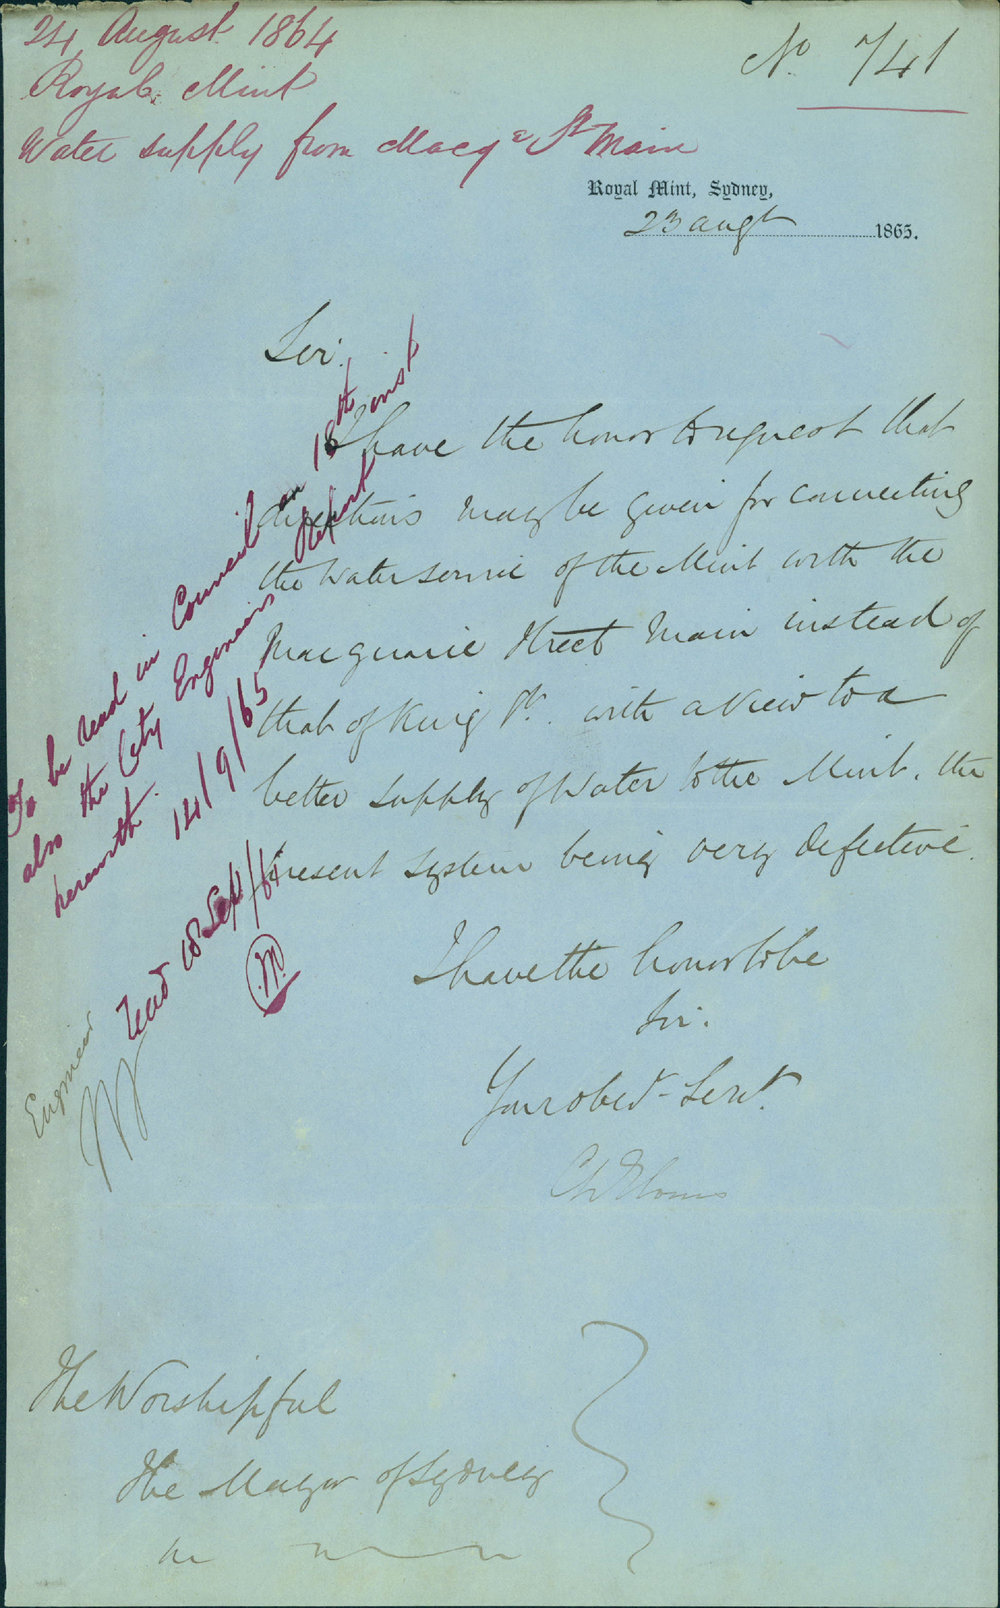 24 August 1864
Royal Mint
Water supply from Macqe St Main
No 741
Royal Mint, Sydney,
23 augt 1865.
Sir.
I have the honor to request that
directions may be given for connecting
the water service of the Mint with the
Macquarie Street Main instead of
that of King St. with a view to a
better supply of Water to the Mint. the
present system being very defective.
I have the honor to be
Sir.
Your obedt Servt.
The Worshipful
The Mayor of Sydney
To be read in Council on 18th inst
also the City Engineers Report
herewith.
14/9/65
read 18 Sept/65
M.
Engineer